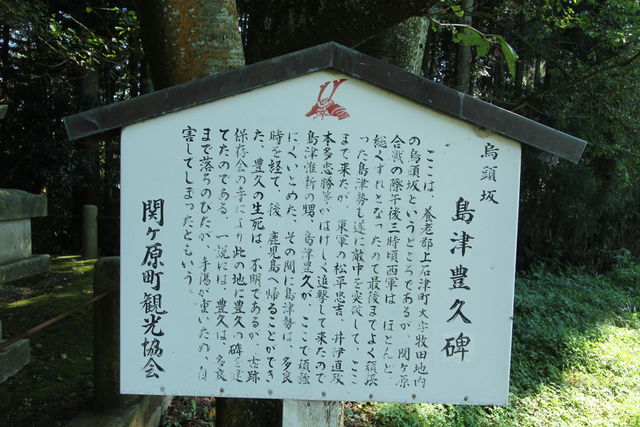 烏頭坂
島津豊久碑
ここは、養老郡上石津町大字牧田地内
の烏頭坂というところであるが、関ケ原
合戦の際午後三時頃西軍は、ほとんど
総くずれとなったので最後までよく頑張
った島津勢も遂に敵中を突破して、ここ
まで来たが、東軍の松平忠吉、井伊直政
本多忠勝等がはげしく追撃して来たので
島津惟新の甥、島津豊久が、ここで頑強
にくいとめた。その間に島津勢は、多良
時を経て、後 鹿児島へ帰ることができ
た。豊久の生死は、不明であるが、古跡
保存会の手により此の地に豊久の碑を建
てたのである。一説には、豊久は、多良
まで落ちのびたが、手傷が重いため、自
害してしまったともいう。
関ヶ原町観光協会